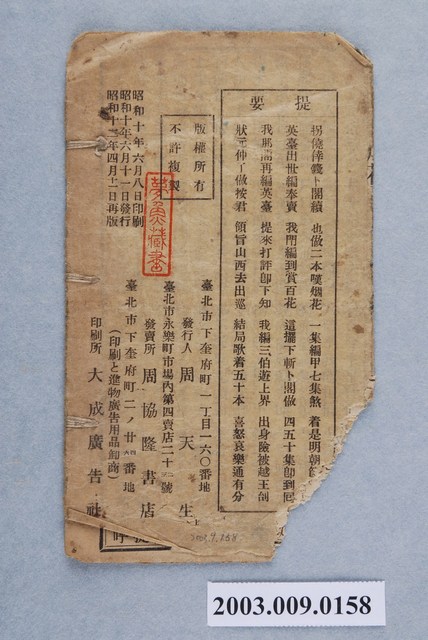 提要
拐僥倖錢卜閣續 也做二本嘆烟花 一集編甲七集煞 着是明朝
英臺出世編奉賣 我門編到賞百花 這擺下斬卜閣做 四五十集即到
我那需再編英臺 提來打評即下知 我編三伯遊上界 出身險被越王刣
狀元伸了做按君 領旨山西去出巡 結局歌着五十本 喜怒哀樂通有分
版權所有
不許複製
昭和十年六月八日印刷
昭和十年六月十一日發行
昭和十二年四月十一日再版
夢魚藏書
臺北市下奎府町一丁目一六〇番地
發行人 周天生
臺北市永樂町市場內第四賣店二十二號
發賣所 周協隆書店
臺北市下奎府町二ノ廿八番地
(印刷と進物廣告用品卸商)
印刷所 大成廣告社
2003.9.158
2003.009.0158